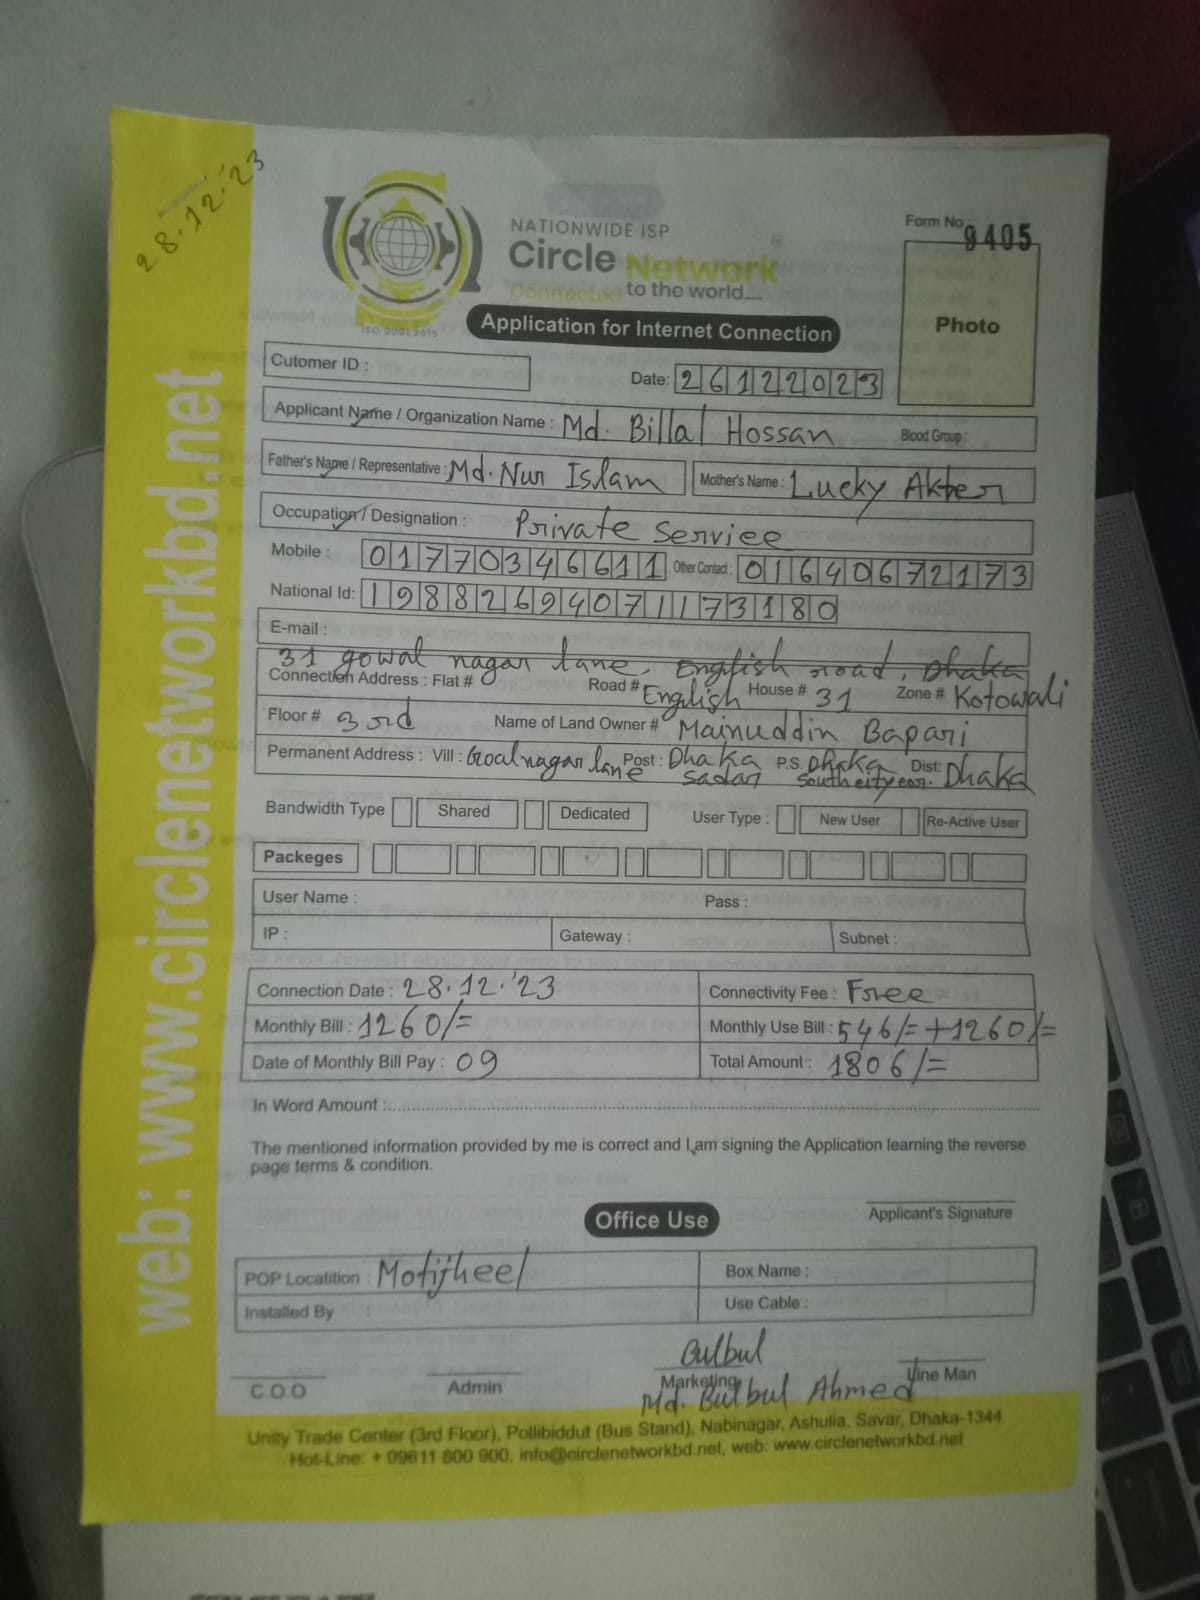 28.12.'23
NATIONWIDE ISP
Circle Network
Connected to the world....
ISO 9001:2015
Form No : 9405
Photo
Application for Internet Connection
Cutomer ID :
Date: 26122023
Applicant Name / Organization Name : Md. Billal Hossan Blood Group:
Father's Name / Representative : Md. Nur Islam Mother's Name : Lucky Akter
Occupation / Designation : Private Service
Mobile : 01770346611 Other Contact: 01640672173
National Id: 19882694071173180
E-mail :
31 gowal nagar lane, English road, Dhaka
Connection Address : Flat # Road # English House # 31 Zone # Kotowali
Floor # 3rd Name of Land Owner # Mainuddin Bapari
Permanent Address : Vill : Goalnagar lane Post : Dhaka sadar P.S. Dhaka South city Dist: Dhaka
Bandwidth Type Shared Dedicated User Type : New User Re-Active User
Packeges
User Name : Pass :
IP : Gateway : Subnet :
Connection Date : 28.12.'23 Connectivity Fee : Free
Monthly Bill : 1260/= Monthly Use Bill : 546/= +1260/=
Date of Monthly Bill Pay : 09 Total Amount : 1806/=
In Word Amount :
The mentioned information provided by me is correct and I am signing the Application learning the reverse
page terms & condition.
Applicant's Signature
Office Use
POP Locatition : Motijheel Box Name :
Installed By : Use Cable :
Bulbul
C.O.O Admin Marketing Line Man
Md. Bulbul Ahmed
Unity Trade Center (3rd Floor), Pollibiddut (Bus Stand), Nabinagar, Ashulia, Savar, Dhaka-1344
Hot-Line: + 09611 800 900, info@circlenetworkbd.net, web: www.circlenetworkbd.net
web: www.circlenetworkbd.net